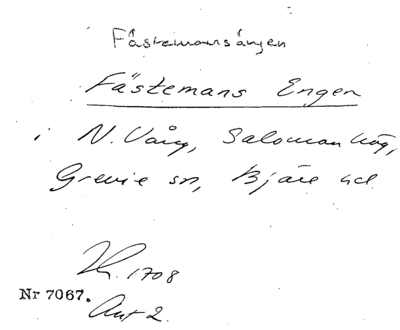 Fästemansängen
Fästemans Engen
i N. Vång, Salomonhög,
Grevie sn, Bjäre hd.
1708
Nr 7067.
Akt 2.